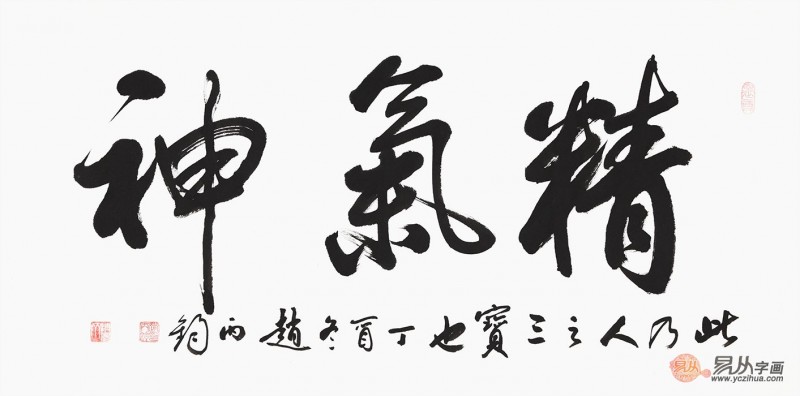 精氣神
此乃人之三寶也丁酉冬趙丙鈞
易从字画
www.yczihua.com